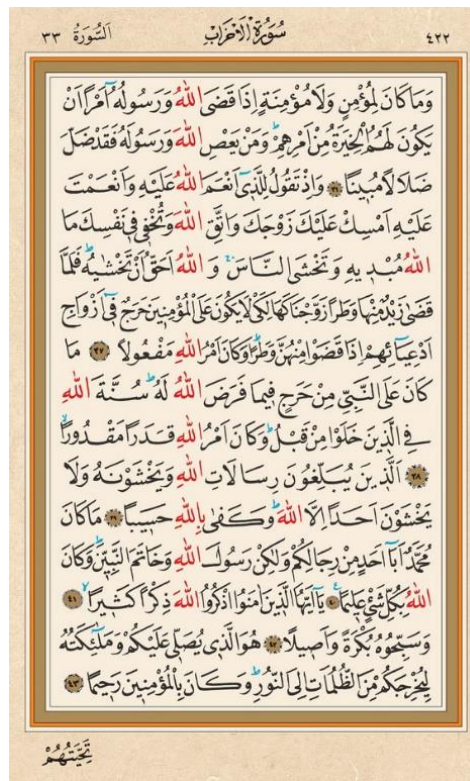 ٤٢٢ سُورَةُ الْاَحْزَابِ اَلسُّورَةُ ٣٣
وَمَا كَانَ لِمُؤْمِنٍ وَلَا مُؤْمِنَةٍ اِذَا قَضَى اللّٰهُ وَرَسُولُهُٓ اَمْرًا اَنْ
يَكُونَ لَهُمُ الْخِيَرَةُ مِنْ اَمْرِهِمْ وَمَنْ يَعْصِ اللّٰهَ وَرَسُولَهُ فَقَدْ ضَلَّ
ضَلَالًا مُبِينًا ﴿٣٦﴾ وَاِذْ تَقُولُ لِلَّذِٓي اَنْعَمَ اللّٰهُ عَلَيْهِ وَاَنْعَمْتَ
عَلَيْهِ اَمْسِكْ عَلَيْكَ زَوْجَكَ وَاتَّقِ اللّٰهَ وَتُخْفِي فِي نَفْسِكَ مَا
اللّٰهُ مُبْدِيهِ وَتَخْشَى النَّاسَ وَ اللّٰهُ اَحَقُّ اَنْ تَخْشٰيهُ فَلَمَّا
قَضٰى زَيْدٌ مِنْهَا وَطَرًا زَوَّجْنَاكَهَا لِكَيْ لَا يَكُونَ عَلَى الْمُؤْمِنِينَ حَرَجٌ فِٓي اَزْوَاجِ
اَدْعِيَٓائِهِمْ اِذَا قَضَوْا مِنْهُنَّ وَطَرًا وَكَانَ اَمْرُ اللّٰهِ مَفْعُولًا ﴿٣٧﴾ مَا
كَانَ عَلَى النَّبِيِّ مِنْ حَرَجٍ فِيمَا فَرَضَ اللّٰهُ لَهُ سُنَّةَ اللّٰهِ
فِي الَّذِينَ خَلَوْا مِنْ قَبْلُ وَكَانَ اَمْرُ اللّٰهِ قَدَرًا مَقْدُورًا
﴿٣٨﴾ اَلَّذِينَ يُبَلِّغُونَ رِسَالَاتِ اللّٰهِ وَيَخْشَوْنَهُ وَلَا
يَخْشَوْنَ اَحَدًا اِلَّا اللّٰهَ وَكَفٰى بِاللّٰهِ حَسِيبًا ﴿٣٩﴾ مَا كَانَ
مُحَمَّدٌ اَبَٓا اَحَدٍ مِنْ رِجَالِكُمْ وَلٰكِنْ رَسُولَ اللّٰهِ وَخَاتَمَ النَّبِيِّنَ وَكَانَ
اللّٰهُ بِكُلِّ شَيْءٍ عَلِيمًا ﴿٤٠﴾ يَٓا اَيُّهَا الَّذِينَ اٰمَنُوا اذْكُرُوا اللّٰهَ ذِكْرًا كَثِيرًا ﴿٤١﴾
وَسَبِّحُوهُ بُكْرَةً وَاَصِيلًا ﴿٤٢﴾ هُوَ الَّذِي يُصَلِّي عَلَيْكُمْ وَمَلٰٓئِكَتُهُ
لِيُخْرِجَكُمْ مِنَ الظُّلُمَاتِ اِلَى النُّورِ وَكَانَ بِالْمُؤْمِنِينَ رَحِيمًا ﴿٤٣﴾
تَحِيَّتُهُمْ